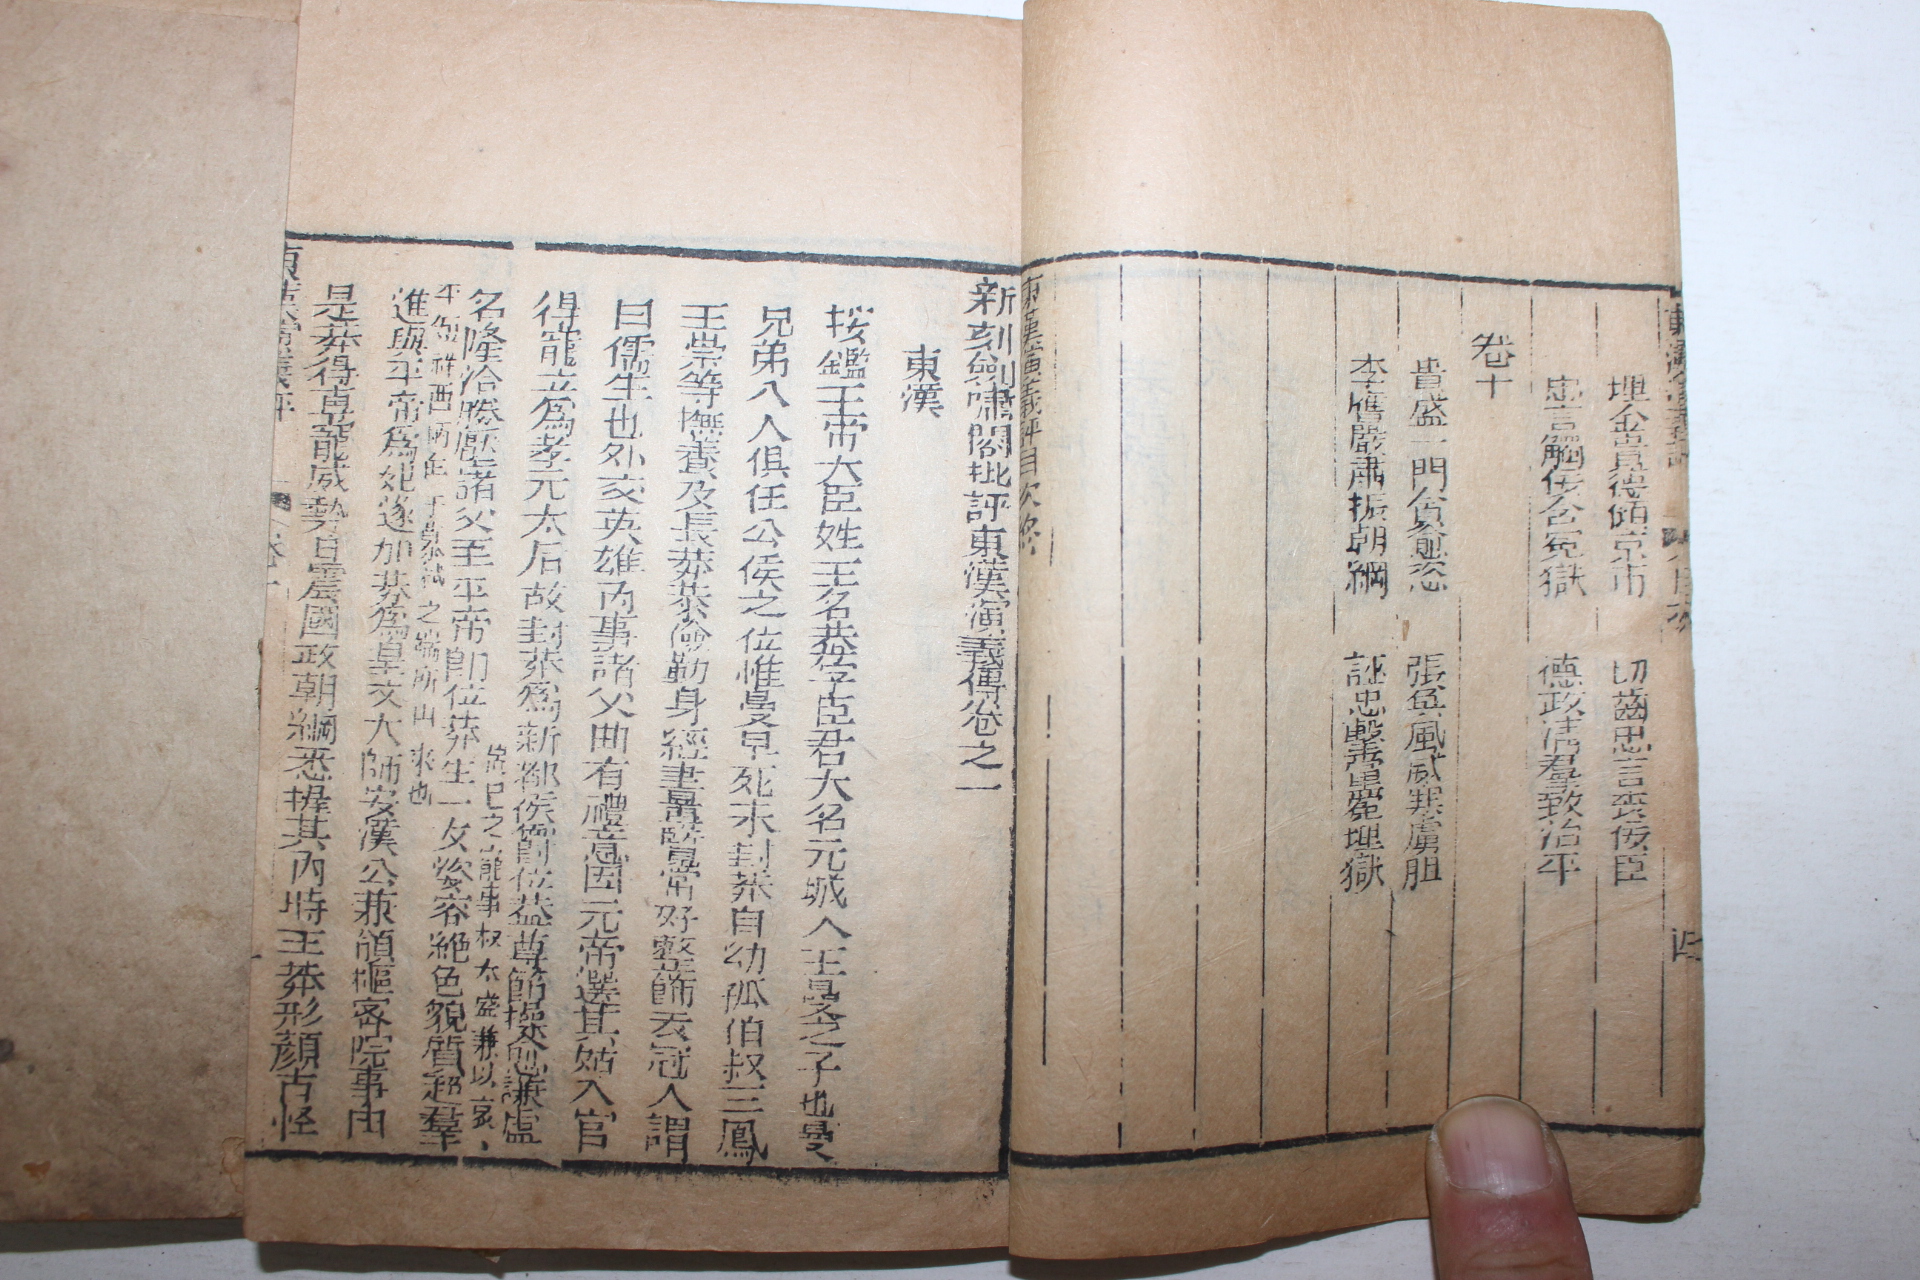 埋金貴德傾京市　切齒忠言喪佞臣
忠言觸佞含冤獄　德政清羣致治平
卷十
貴盛一門貪愈恣　張奐風威寒虜胆
李膺嚴肅振朝綱　誣忠擊黨冤埋獄
東漢演義評目次終
新刻劍嘯閣批評東漢演義傳卷之一
東漢
按鑑王帝大臣姓王名莽字臣君大名元城人王曼之子也曼
兄弟八人俱任公侯之位惟曼早死未封莽自幼孤伯叔三鳳
王崇等撫養及長莽恭儉勤身經書曇瞖嘗好整飾衣冠人謂
曰儒生也外交英雄內事諸父曲有禮意因元帝選其姑入宮
得寵立為孝元太后故封莽為新都侯爵位益尊節操愈謙虛
名隆洽勝壓諸父至平帝即位莽生一女姿容絕色貌質超羣
進與平帝為妃遂加莽為皇丈大師安漢公兼領樞密院事由
是莽得專寵威勢日震國政朝綱悉握其內時王莽形顏古怪